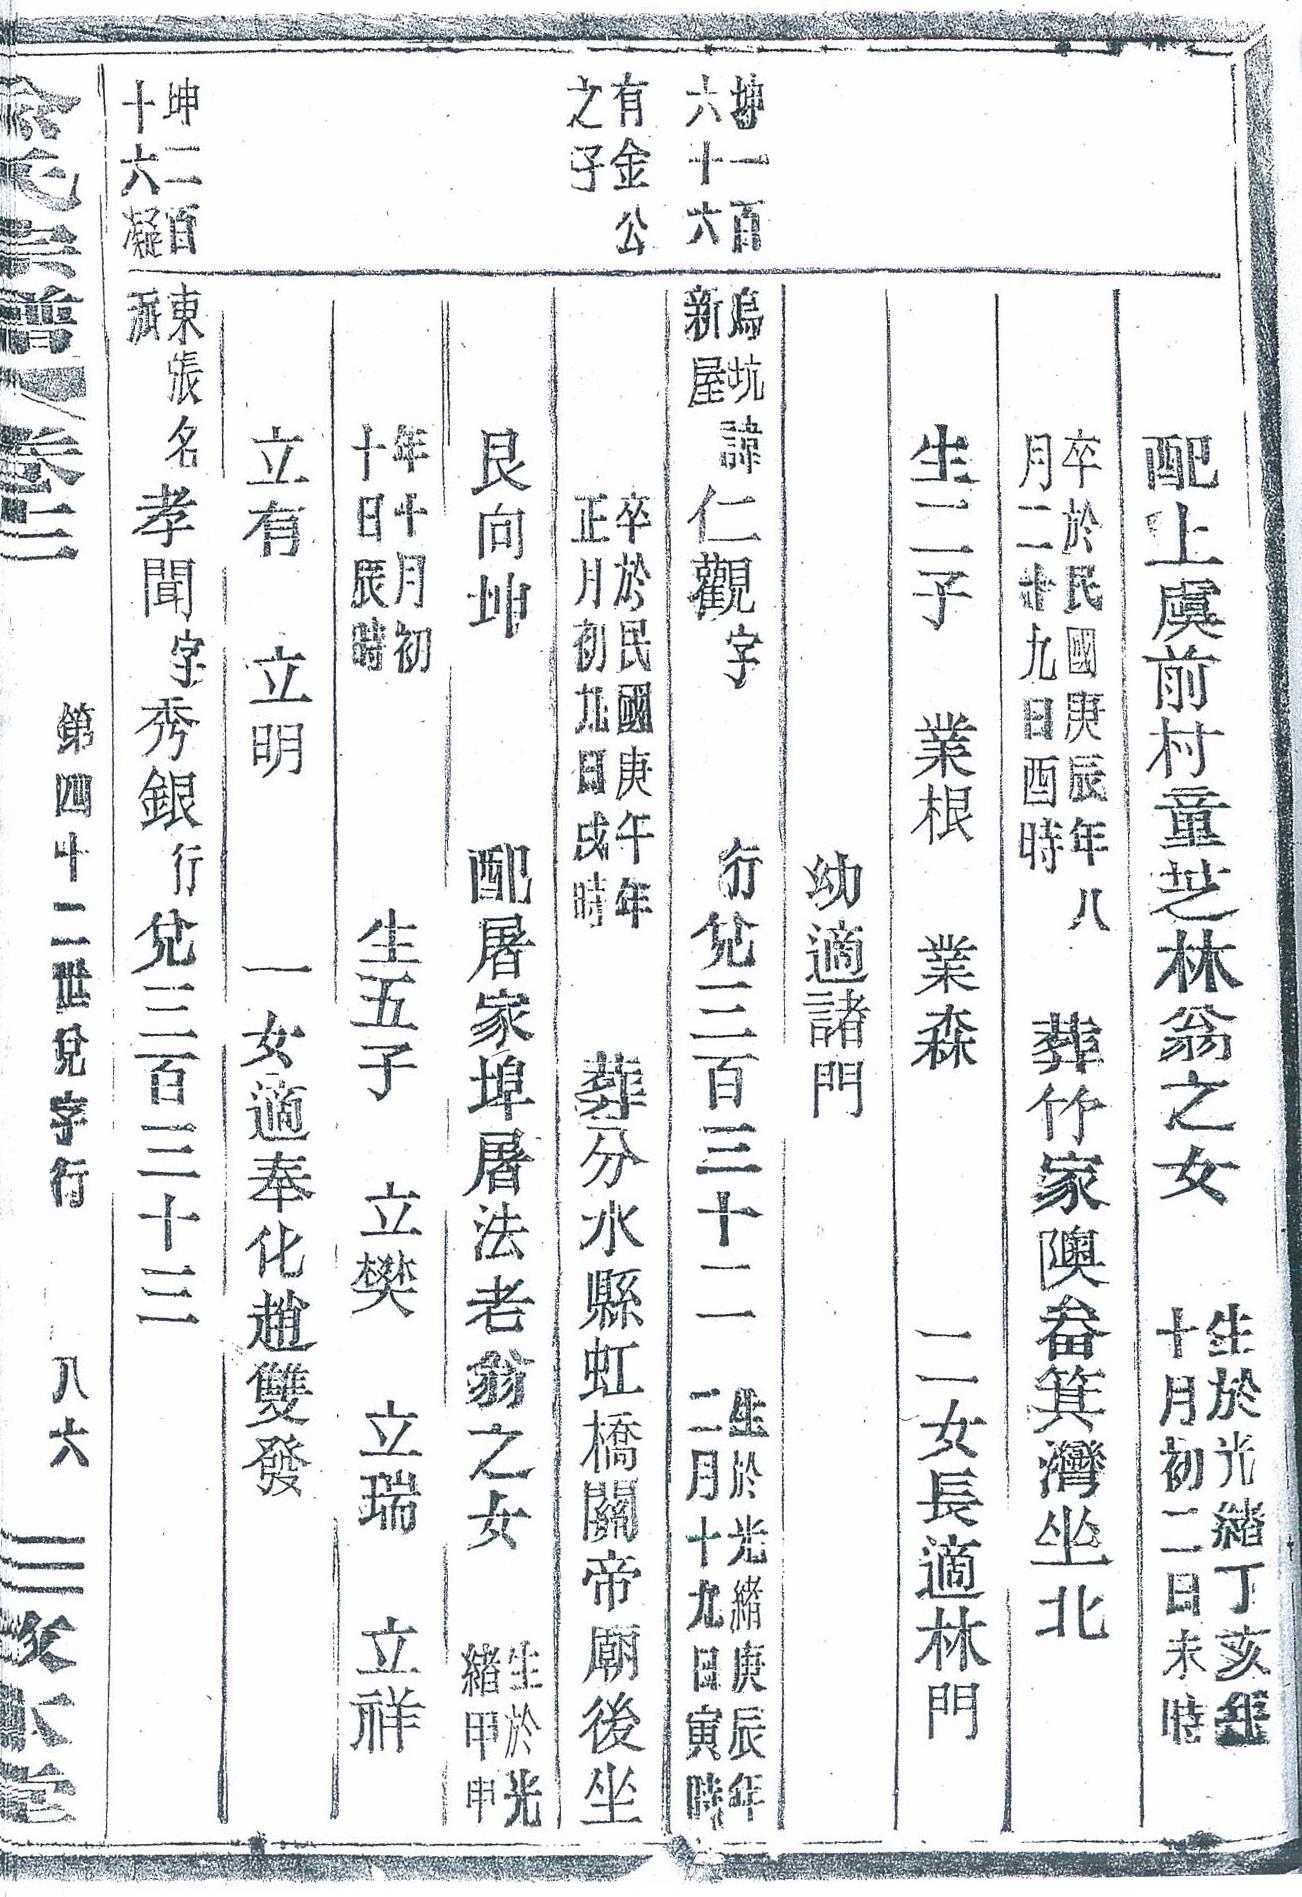 配上虞前村童芝林翁之女
生於光緒丁亥年
十月初二日未時
卒於民國庚辰年八
月二十九日酉時
葬竹家隩畚箕灣坐北
生二子 業根 業森 二女長適林門
幼適諸門
坤一百
六十六
烏坑
新屋
諱仁觀字 行兌三百三十二
生於光緒庚辰年
二月十九日寅時
有金公
之子
卒於民國庚午年
正月初九日戌時
葬分水縣虹橋關帝廟後坐
艮向坤 配屠家埠屠法老翁之女
生於光
緒甲申
年十月初
十日辰時
生五子 立樊 立瑞 立祥
立有 立明 一女適奉化趙雙發
坤二百
十六凝
東張
派
名孝聞字秀銀行兌三百三十三
宗譜 卷三
第四十二世兌字行
八六